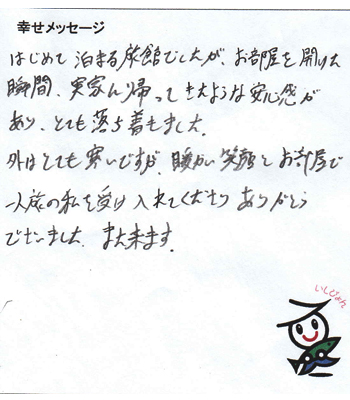 幸せメッセージ
はじめて泊まる旅館でしたが、お部屋を開けた
瞬間、実家に帰ってきたような安心感が
あり、とても落ち着きました。
外はとても寒いですが、暖かい笑顔とお部屋で
一人旅の私を受け入れてくださりありがとう
ございました。また来ます。
いしぴょん